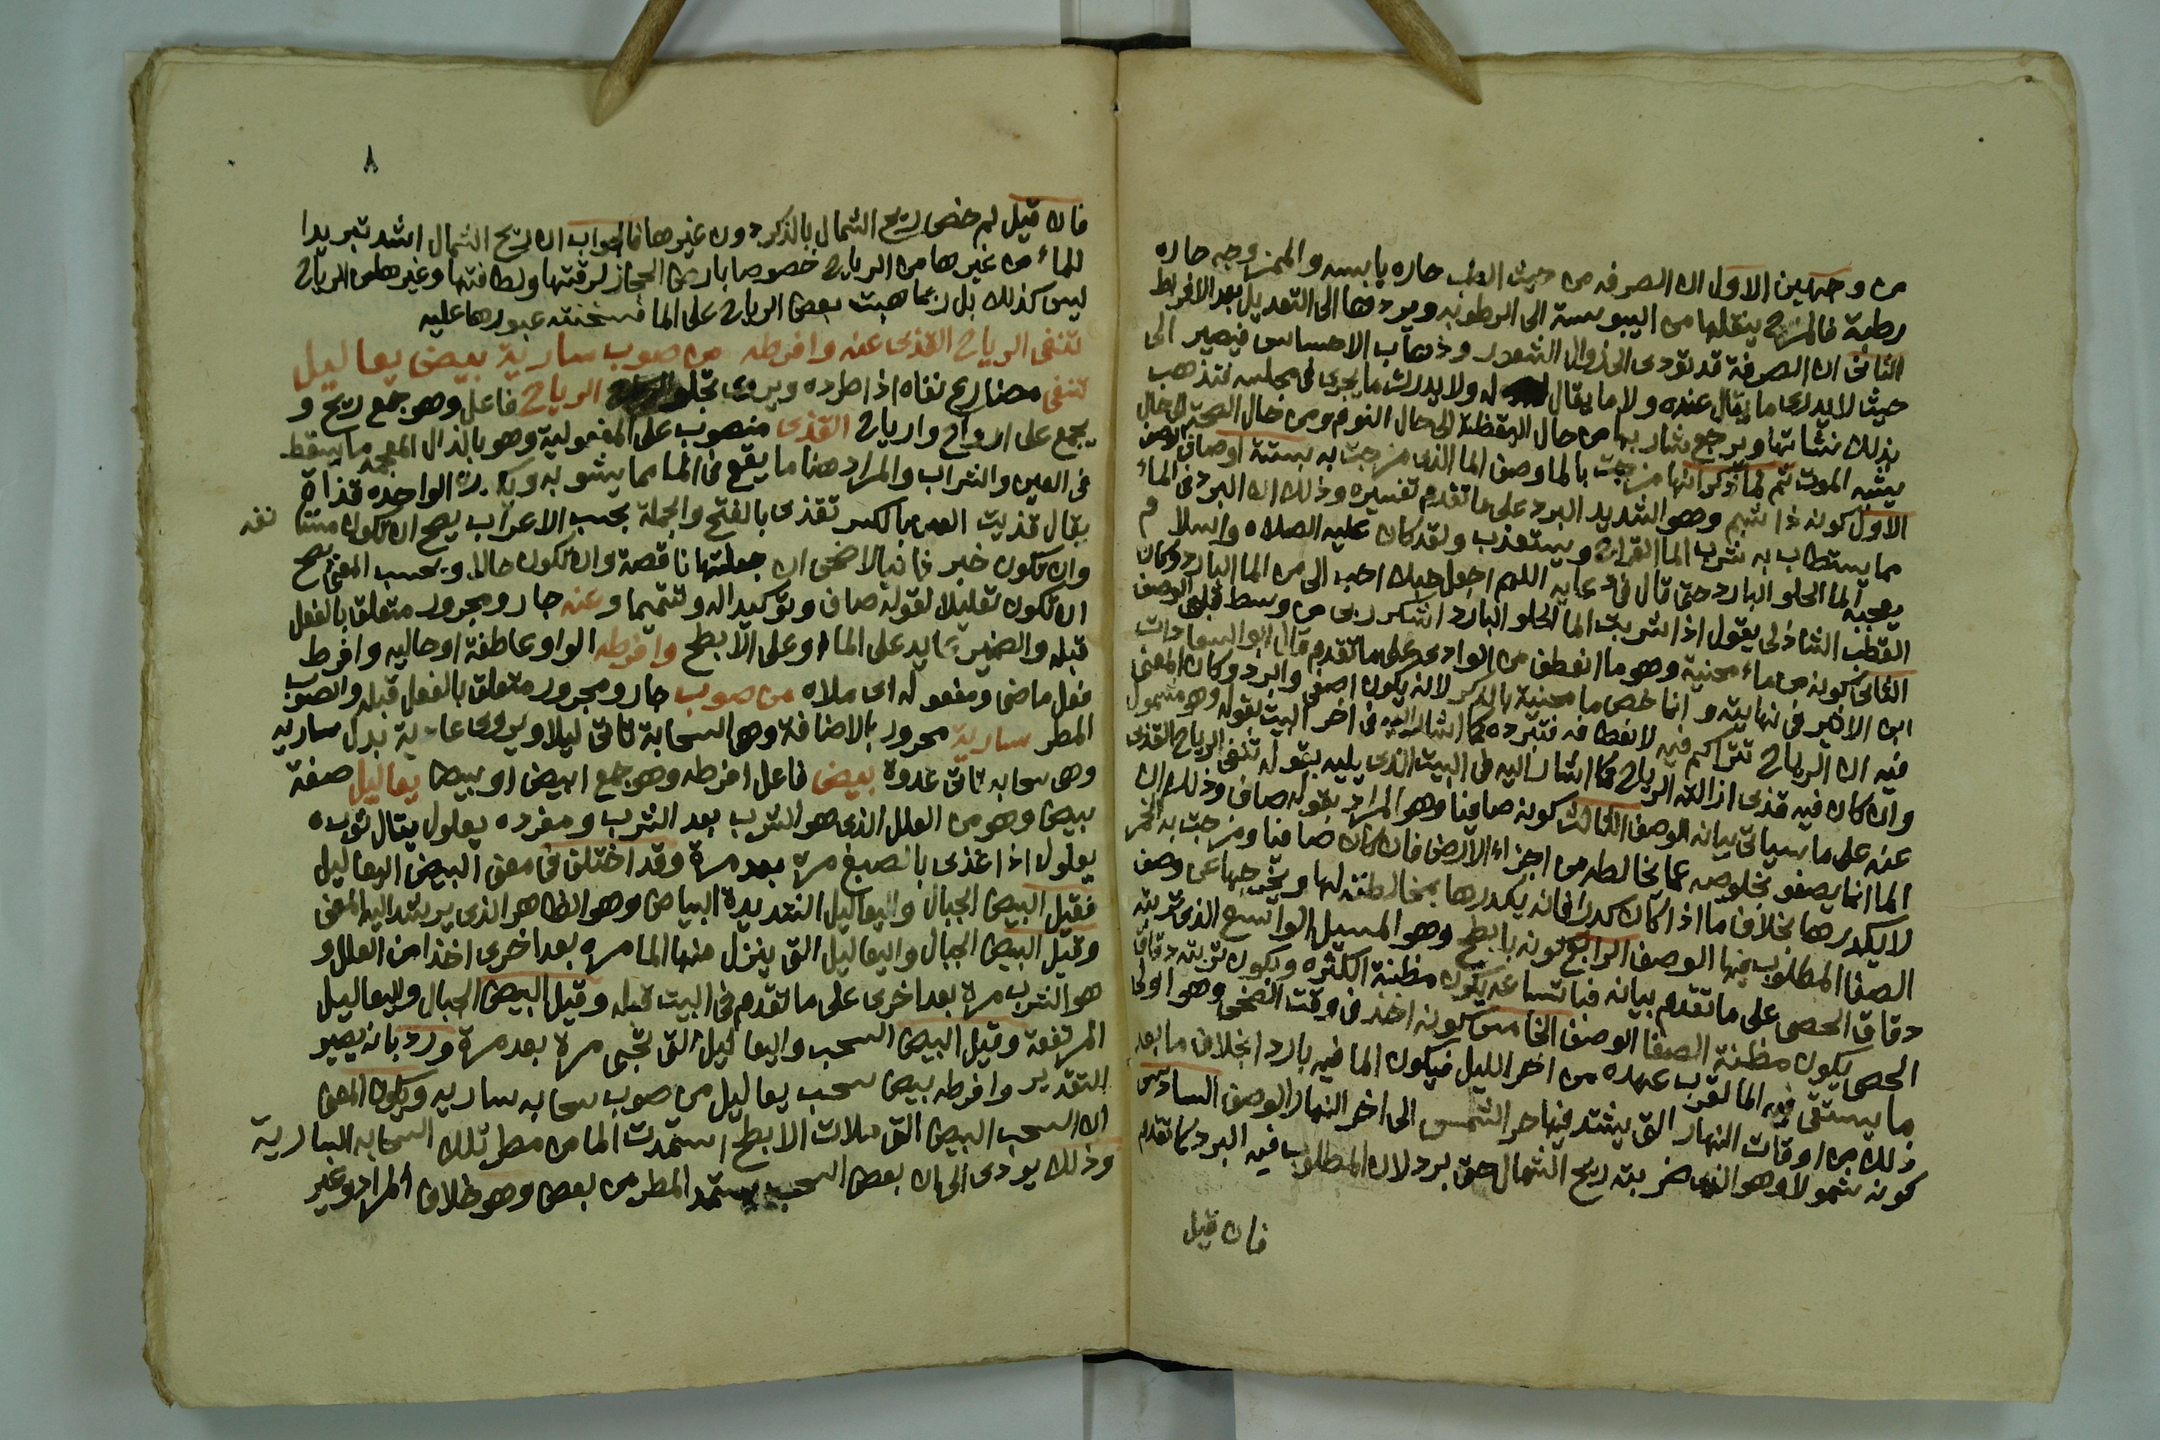 من وجهين الاول ان الصرفه من حيث الطب حاره يابسه والممزوجه حاره
رطبة فالمزاج ينقلها من اليبوسة الى الرطوبه ويردها الى التعديل بعد الافراط
الثانى ان الصرفة قد تؤدى الى زوال الشعور وذهاب الاحساس فيصير الى
حيث لا يدرى ما يقال عنده ولا ما يقال له ولا يدرك ما يجرى فى مجلسه فتذهب
بذلك نشاتها ويرجع شاربها من حال اليقظة الى حال النوم ومن حال الصحة الى حال
يشبه الموت ثم لما ذكر انها مزجت بالما وصف الما الذى مزجت به بستة اوصاف الوصف
الاول كونه ذا شبم وهو الشديد البرد على ما تقدم تفسيره وذلك ان البرد فى الماء
مما يستطاب به شرب الما القراح ويستعذب ولقد كان عليه الصلاه والسلام
يعجبه الما الحلو البارد حتى قال فى دعايه اللهم اجعل حبك احب الى من الما البارد وكان
القطب الشاذلى يقول اذا شربت الما الحلو البارد اشكر ربى من وسط قلبى الوصف
الثانى كونه من ماء محنية وهو ما انعطف من الوادى على ما تقدم قال ابو السعادات
ابن الاثير فى نهايته وانما خص ما محنية بالذكر لانه يكون اصفى وابرد وكان المعنى
فيه ان الرياح تتراكم فيه لانعطافه فتبرده كما اشار اليه فى اخر البيت بقوله وهو مشمول
وان كان فيه قذى ازالته الرياح كما اشار اليه فى البيت الذى يليه بقوله تنفى الرياح القذى
عنه على ما سياتى بيانه الوصف الثالث كونه صافيا وهو المراد بقوله صاف وذلك ان
الما انما يصفو بخلوصه عما يخالطه من اجزاء الارض فان كان صافيا ومزجت به الخمر
لا يكدرها بخلاف ما اذا كان كدرا فانه يكدرها بمخالطته لها ويخرجها عن وصف
الصفا المطلوب فيها الوصف الرابع كونه بابطح وهو المسيل الواسع الذى تربته
دقاق الحصى على ما تقدم بيانه فباتساعه يكون مظنة الكثره وبكون تربته دقاق
الحصى يكون مظنة الصفا الوصف الخامس كونه اخذ فى وقت الضحى وهو اولى
ما يستقى فيه الما لقرب عهده من اخر الليل فيكون الما فيه باردا بخلاف ما بعد
ذلك من اوقات النهار التى يشتد فيها حر الشمس الى اخر النهار الوصف السادس
كونه شمولا وهو الذى ضربته ريح الشمال حتى برد لان المطلوب فيه البرد كما تقدم
فان قيل
٨
فان قيل لم خص ريح الشمال بالذكر دون غيرها فالجواب ان ريح الشمال اشد تبريدا
للماء من غيرها من الرياح خصوصا بارض الحجاز لرقتها ولطافتها وغيرها من الرياح
ليس كذلك بل ربما هبت بعض الرياح على الما فسخنته عبورها عليه
تنفى الرياح القذى عنه وافرطه من صوب سارية بيض يعاليل
تنفى مضارع نفاه اذا طرده ويروى تجلو الرياح فاعل وهو جمع ريح و
يجمع على ارواح وارياح القذى منصوب على المفعولية وهو بالذال المعجمه ما يسقط
فى العين والشراب والمراد هنا ما يقع فى الما مما يشوبه ويكدره الواحده قذاة
يقال قذيت العين بالكسر تقذى بالفتح والجملة بحسب الاعراب يصح ان تكون مستانفه
وان تكون خبر ثانيا لاضحى ان جعلتها ناقصة وان تكون حالا وبحسب المعنى يصح
ان تكون تعليلا لقوله صاف وتوكيدا له وتتميما وعنه جار ومجرور متعلق بالفعل
قبله والضمير عايد على الما او على الابطح وافرطه الواو عاطفة او حاليه وافرط
فعل ماضى ومفعوله اى ملاه من صوب جار ومجرور متعلق بالفعل قبله والصوب
المطر سارية مجرور بالاضافة وهى السحابة تاتى ليلا ويروى غادية بدل ساريه
وهى سحابه تاتى غدوة بيض فاعل افرطه وهو جمع ابيض او بيضا يعاليل صفة
بيض وهو من العلل الذى هو الشرب بعد الشرب ومفرده يعلول يقال ثوب
يعلول اذا غذى بالصبغ مرة بعد مرة وقد اختلف فى معنى البيض اليعاليل
فقيل البيض الجبال واليعاليل الشديدة البياض وهو الظاهر الذى يرشد اليه المعنى
وقيل البيض الجبال واليعاليل التى ينزل منها الما مره بعد اخرى اخذا من العلل و
هو الشرب مرة بعد اخرى على ما تقدم فى البيت قبله وقيل البيض الجبال واليعاليل
المرتفعة وقيل البيض السحب واليعاليل التى تجى مرة بعد مرة ورد بانه يصير
التقدير وافرطه بيض سحب يعاليل من صوب سحابه ساريه ويكون المعنى
ان السحب البيض التى ملات الابطح استمدت الما من مطر تلك السحابه السارية
وذلك يودى الى ان بعض السحب يستمد المطر من بعض وهو خلاف المراد وغير